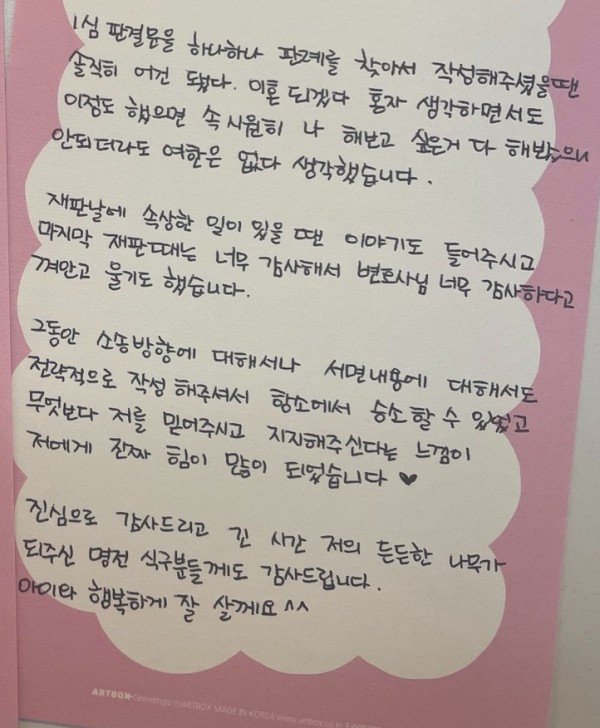 1심 판결문을 하나하나 판례를 찾아서 작성해주셨을땐
솔직히 어건 됐다. 이혼 되겠다 혼자 생각하면서도
이정도 했으면 속 시원히 나 해보고 싶은거 다 해봤으니
안되더라도 여한은 없다 생각했습니다.
재판날에 속상한 일이 있을 땐 이야기도 들어주시고
마지막 재판때는 너무 감사해서 변호사님 너무 감사하다고
껴안고 울기도 했습니다.
그동안 소송방향에 대해서나 서면내용에 대해서도
전략적으로 작성 해주셔서 항소에서 승소할 수 있었고
무엇보다 저를 믿어주시고 지지해주신다는 느낌이
저에게 진짜 힘이 많이 되었습니다 ♥
진심으로 감사드리고 긴 시간 저의 든든한 나무가
되주신 명전 식구분들께도 감사드립니다.
아이와 행복하게 잘 살게요 ^^
ARTBOX Greetings ©ARTBOX MADE IN KOREA www.artbox.co.kr